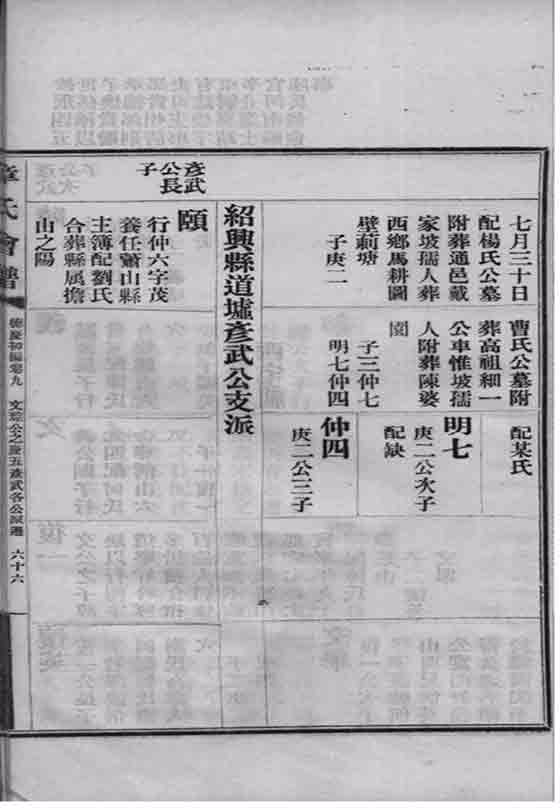 七月三十日
配楊氏公墓
附葬通邑戴
家坡孺人葬
西鄉馬耕圖
壁莿塘
子庚二
曹氏公墓附
葬高祖細一
公車惟坡孺
人附葬陳婆
園
子三仲七
明七仲四
配某氏
明七
庚二公次子
配缺
仲四
庚二公三子
紹興縣道墟彥武公支派
彥武
公長
子
頤
行仲六字茂
養任蕭山縣
主簿配劉氏
合葬縣属擔
山之陽
章氏會譜
德慶初編卷九
彥武各公派遷
六十六